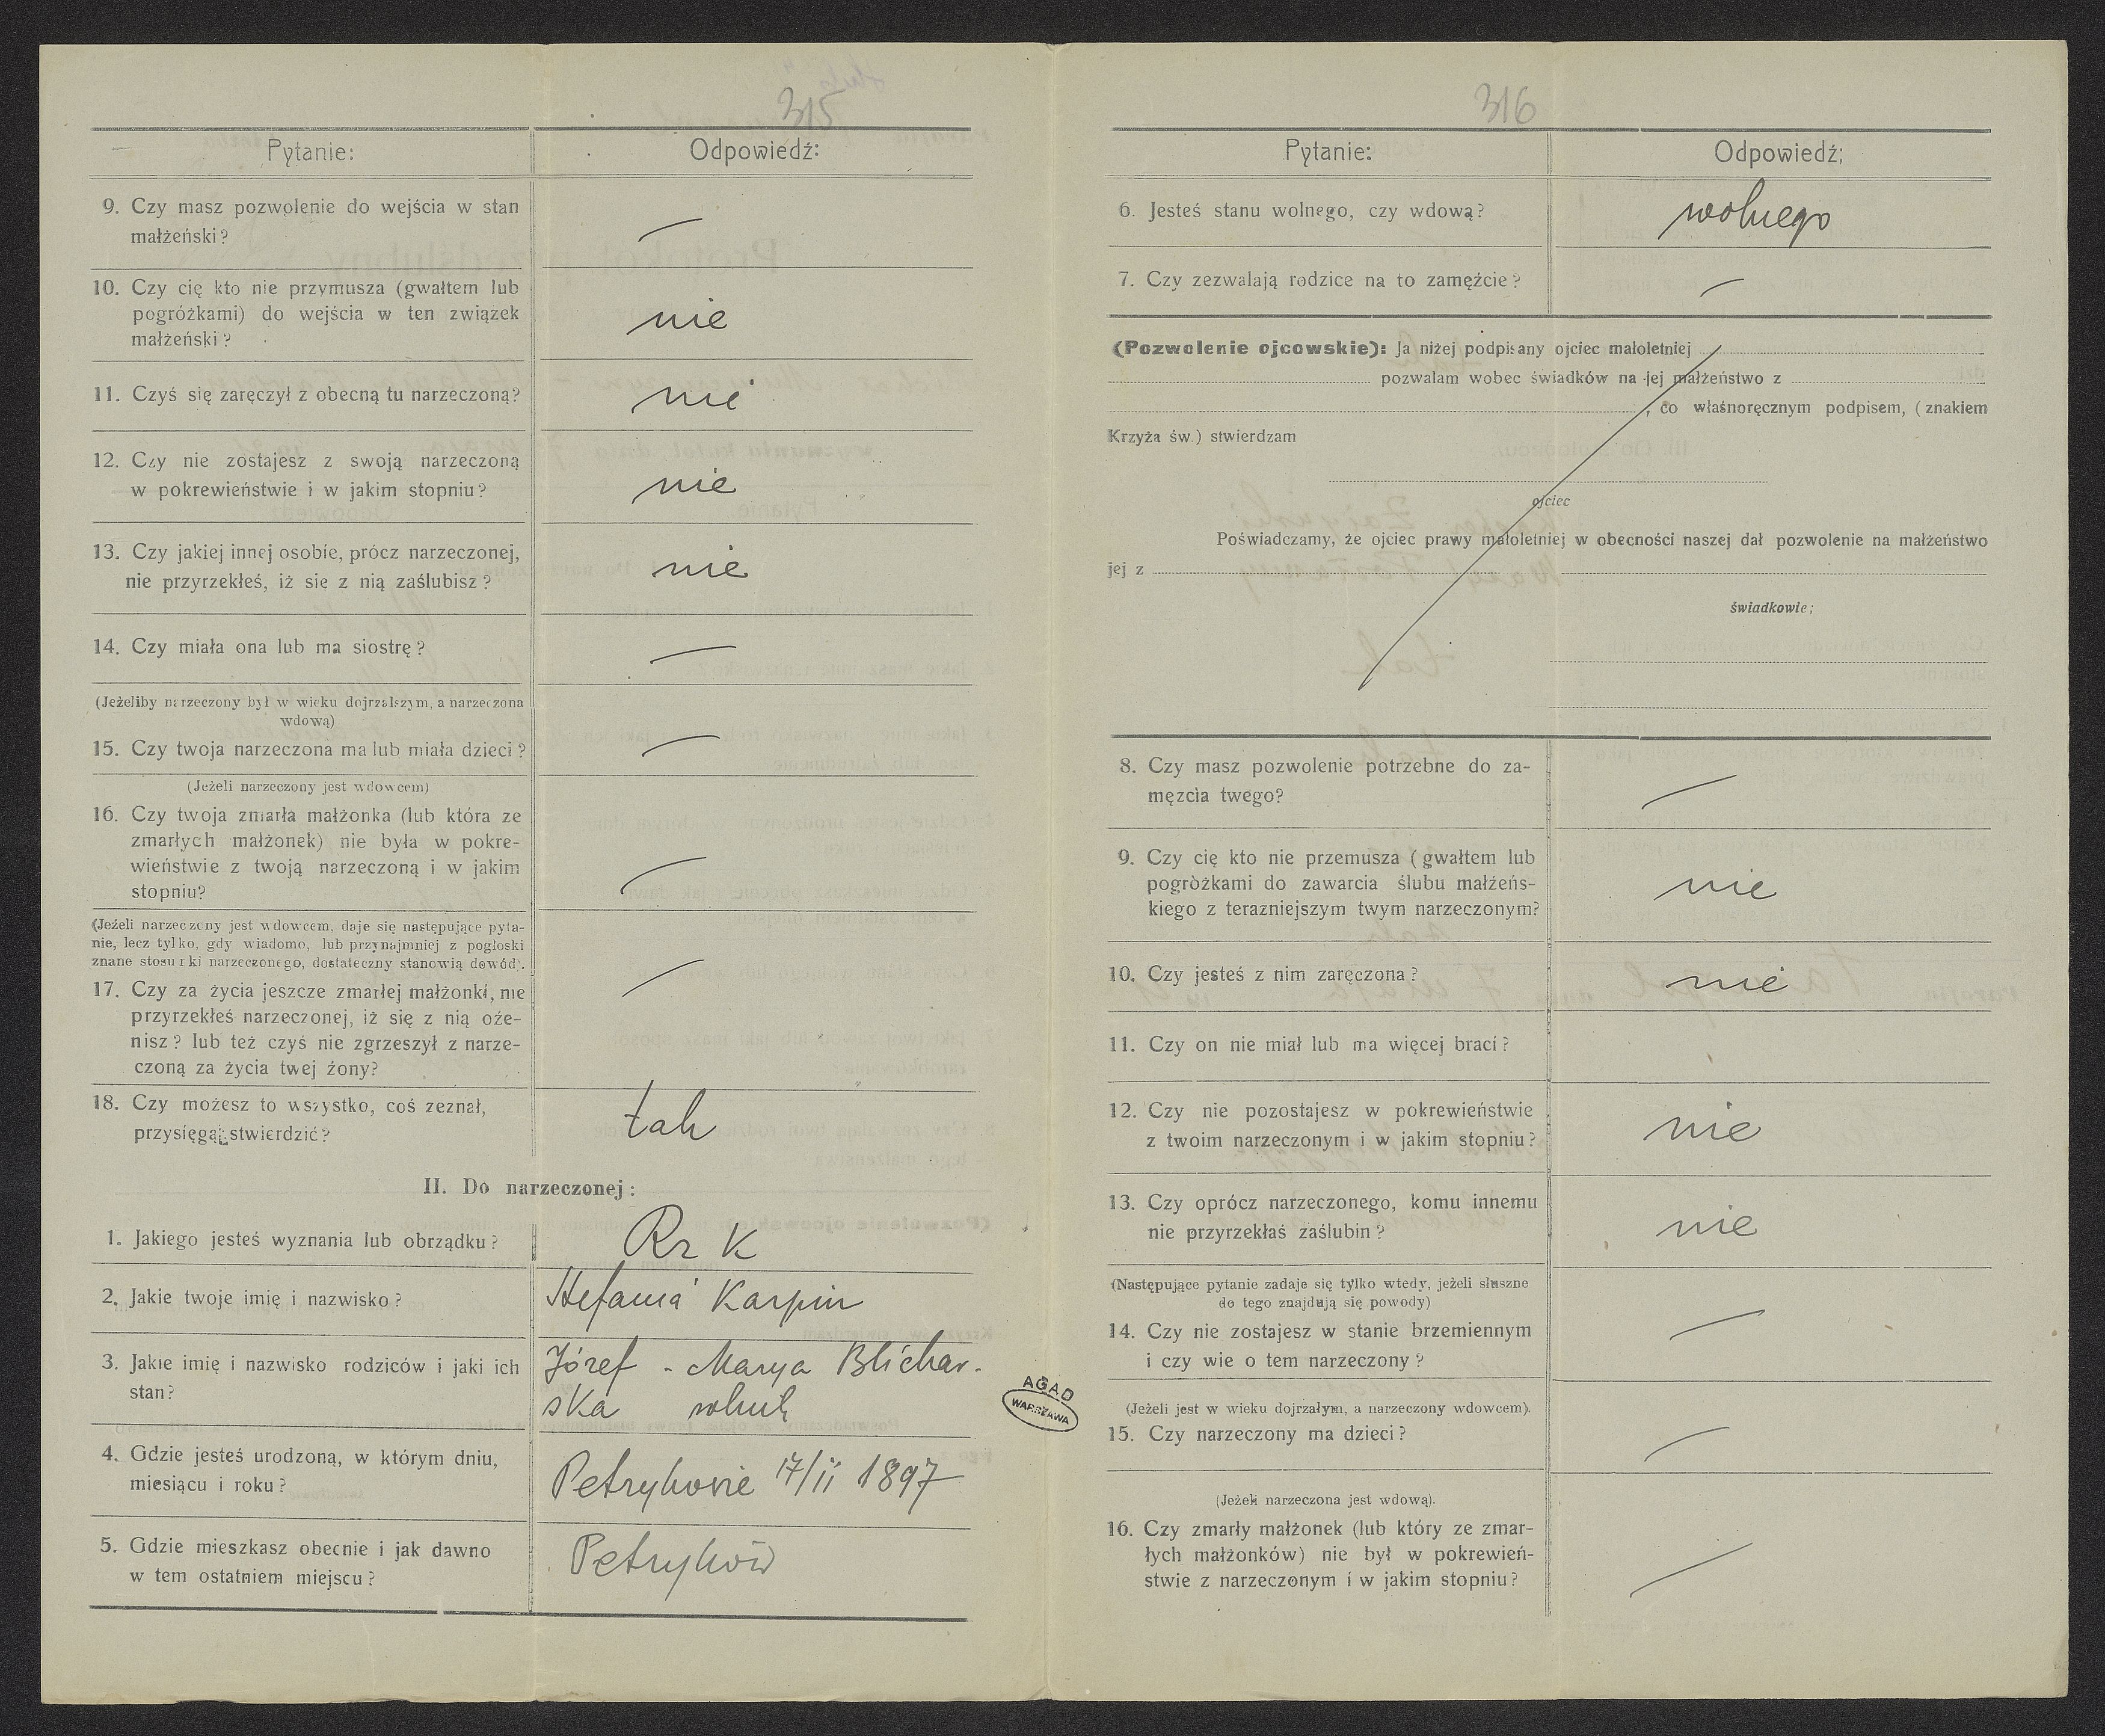 315
Pytanie:
Odpowiedź:
9. Czy masz pozwolenie do wejścia w stan
małżeński?
—
10. Czy cię kto nie przymusza (gwałtem lub
pogróżkami) do wejścia w ten związek
małżeński?
nie
11. Czyś się zaręczył z obecną tu narzeczoną?
nie
12. Czy nie zostajesz z swoją narzeczoną
w pokrewieństwie i w jakim stopniu?
nie
13. Czy jakiej innej osobie, prócz narzeczonej,
nie przyrzekłeś, iż się z nią zaślubisz?
nie
14. Czy miała ona lub ma siostrę?
—
(Jeżeliby narzeczony był w wieku dojrzalszym, a narzeczona
wdową)
15. Czy twoja narzeczona ma lub miała dzieci?
—
(Jeżeli narzeczony jest wdowcem)
16. Czy twoja zmarła małżonka (lub która ze
zmarłych małżonek) nie była w pokre-
wieństwie z twoją narzeczoną i w jakim
stopniu?
—
(Jeżeli narzeczony jest wdowcem, daje się następujące pyta-
nie, lecz tylko, gdy wiadomo, lub przynajmniej z pogłoski
znane stosunki narzeczonego, dostateczny stanowią dowód).
17. Czy za życia jeszcze zmarłej małżonki, nie
przyrzekłeś narzeczonej, iż się z nią oże-
nisz? lub też czyś nie zgrzeszył z narze-
czoną za życia twej żony?
—
18. Czy możesz to wszystko, coś zeznał,
przysięgą stwierdzić?
tak
II. Do narzeczonej:
1. Jakiego jesteś wyznania lub obrządku?
Rz K
2. Jakie twoje imię i nazwisko?
Stefania Karpin
3. Jakie imię i nazwisko rodziców i jaki ich
stan?
Józef - Marya Blichar-
ska
4. Gdzie jesteś urodzoną, w którym dniu,
miesiącu i roku?
Petrykowie 17/II 1897
5. Gdzie mieszkasz obecnie i jak dawno
w tem ostatniem miejscu?
Petryków
AGAD
WARSZAWA
316
Pytanie:
Odpowiedź;
6. Jesteś stanu wolnego, czy wdową?
wolnego
7. Czy zezwalają rodzice na to zamęźcie?
—
(Pozwolenie ojcowskie): Ja niżej podpisany ojciec małoletniej
pozwalam wobec świadków na jej małżeństwo z
, co właśnoręcznym podpisem, (znakiem
Krzyża św.) stwierdzam
ojciec
Poświadczamy, że ojciec prawy małoletniej w obecności naszej dał pozwolenie na małżeństwo
jej z
świadkowie;
8. Czy masz pozwolenie potrzebne do za-
męzcia twego?
—
9. Czy cię kto nie przemusza (gwałtem lub
pogròżkami do zawarcia ślubu małżeńs-
kiego z terazniejszym twym narzeczonym?
nie
10. Czy jesteś z nim zaręczona?
nie
11. Czy on nie miał lub ma więcej braci?
12. Czy nie pozostajesz w pokrewieństwie
z twoim narzeczonym i w jakim stopniu?
nie
13. Czy oprócz narzeczonego, komu innemu
nie przyrzekłaś zaślubin?
nie
(Następujące pytanie zadaje się tylko wtedy, jeżeli słuszne
do tego znajdują się powody)
14. Czy nie zostajesz w stanie brzemiennym
i czy wie o tem narzeczony?
—
(Jeżeli jest w wieku dojrzałym, a narzeczony wdowcem).
15. Czy narzeczony ma dzieci?
—
(Jeżeli narzeczona jest wdową).
16. Czy zmarły małżonek (lub który ze zmar-
łych małżonków) nie był w pokrewień-
stwie z narzeczonym i w jakim stopniu?
—